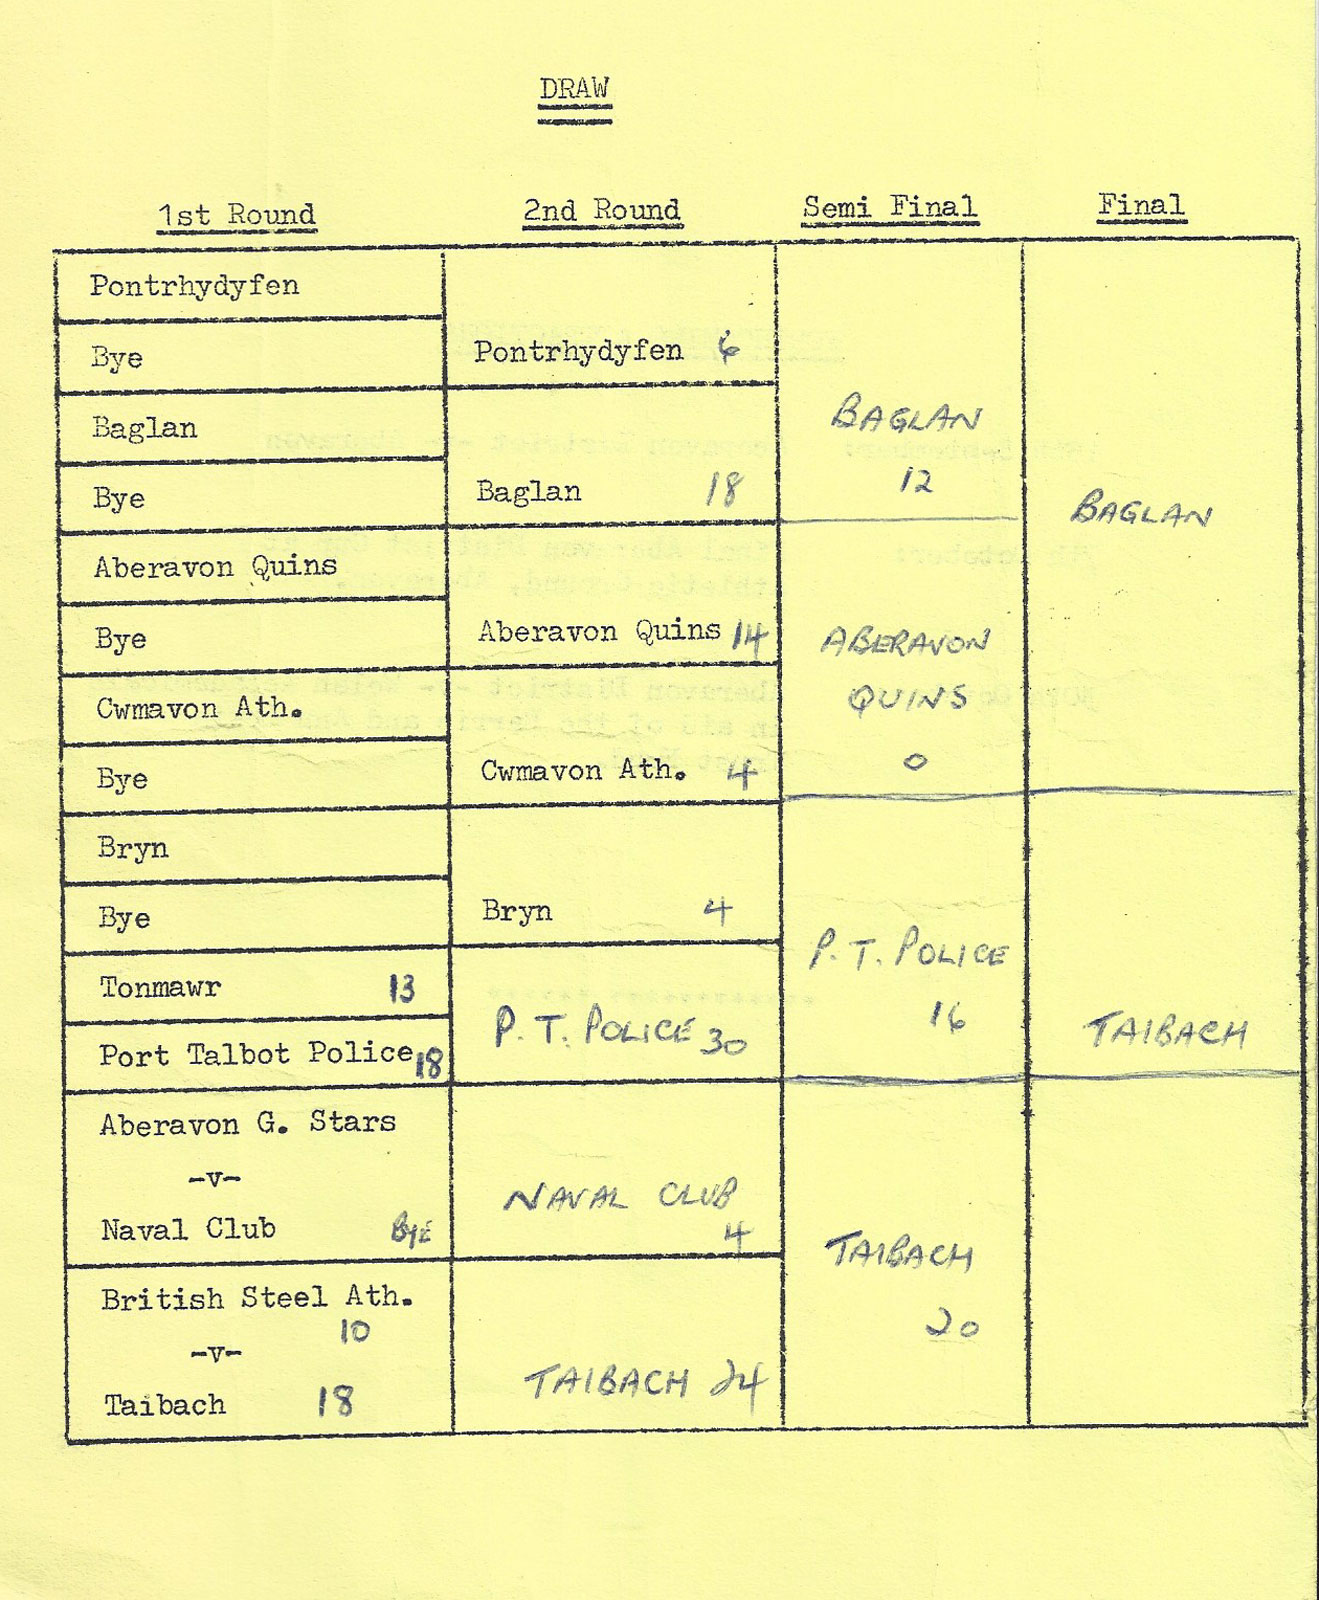 DRAW
1st Round 2nd Round Semi Final Final
Pontrhydyfen
Bye
Baglan
Bye
Aberavon Quins
Bye
Cwmavon Ath.
Bye
Bryn
Bye
Tonmawr 13
Port Talbot Police 18
Aberavon G. Stars
-v-
Naval Club BYE
British Steel Ath.
10
-v-
Taibach 18
Pontrhydyfen 6
Baglan 18
Aberavon Quins 14
Cwmavon Ath. 4
Bryn 4
P. T. POLICE 30
NAVAL CLUB
4
TAIBACH 24
BAGLAN
12
ABERAVON
QUINS
0
P. T. POLICE
16
TAIBACH
20
BAGLAN
TAIBACH